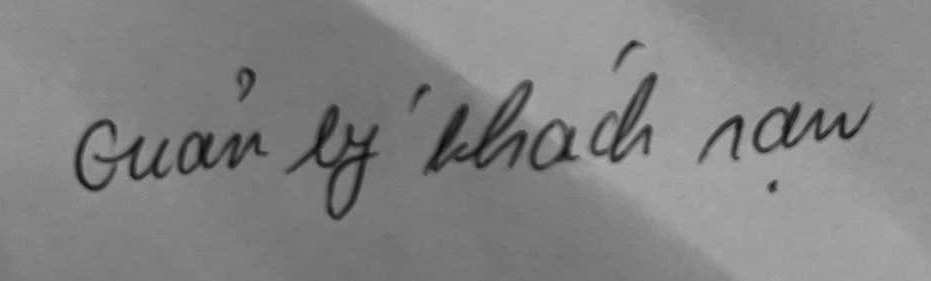 Quản lý khách sạn